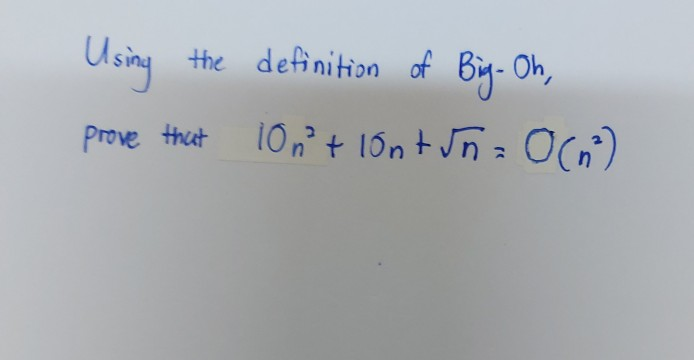 Using the definition of Big-Oh,
prove that 10n² + 10n + √n = O(n²)